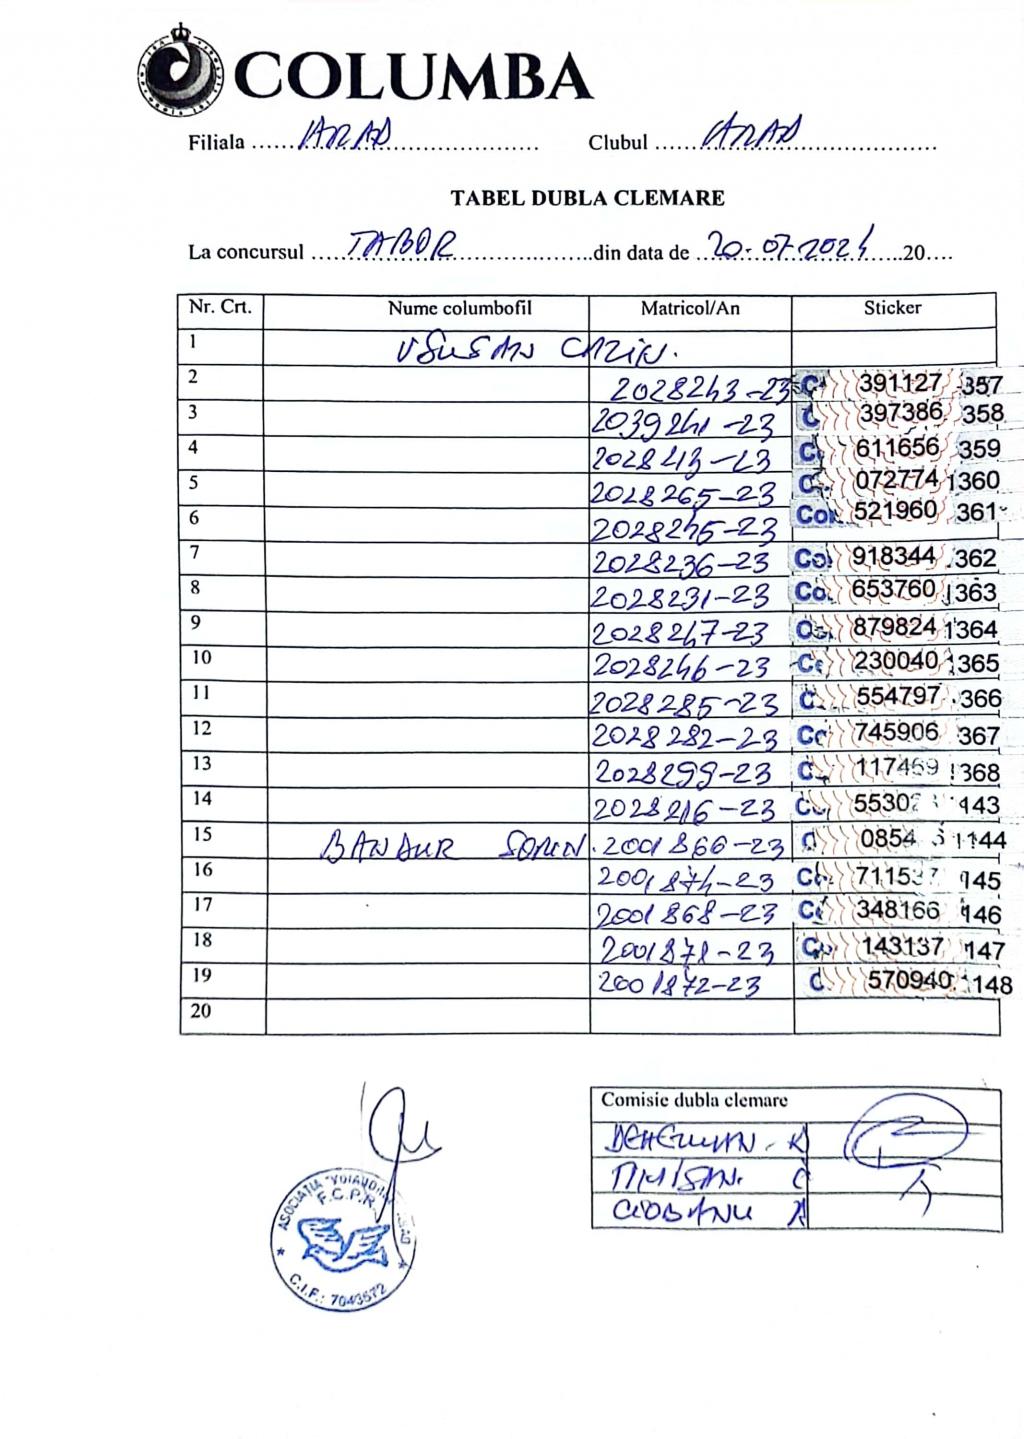 COLUMBA
Filiala ......ARAD.............................. Clubul ......ARAD......................
TABEL DUBLA CLEMARE
La concursul .....TABOR.......................din data de ..20-07-2024.....20....
Nr. Crt. Nume columbofil Matricol/An Sticker
1
2 2028243-23 391127 357
3 2039241-23 397386 358
4 2028413-23 611656 359
5 2028265-23 072774 1360
6 2028245-23 521960 361
7 2028236-23 918344 362
8 2028231-23 653760 363
9 2028247-23 879824 1364
10 2028246-23 230040 365
11 2028285-23 554797 366
12 2028282-23 745906 367
13 2028299-23 117469 368
14 2028216-23 143
15 SORIN 2001866-23 1144
16 2001874-23 145
17 2001868-23 348166 146
18 2001871-23 143137 147
19 2001872-23 570940 148
20
Comisie dubla clemare
CIOBANU
F.C.P.R.
C.I.F.: 7043572